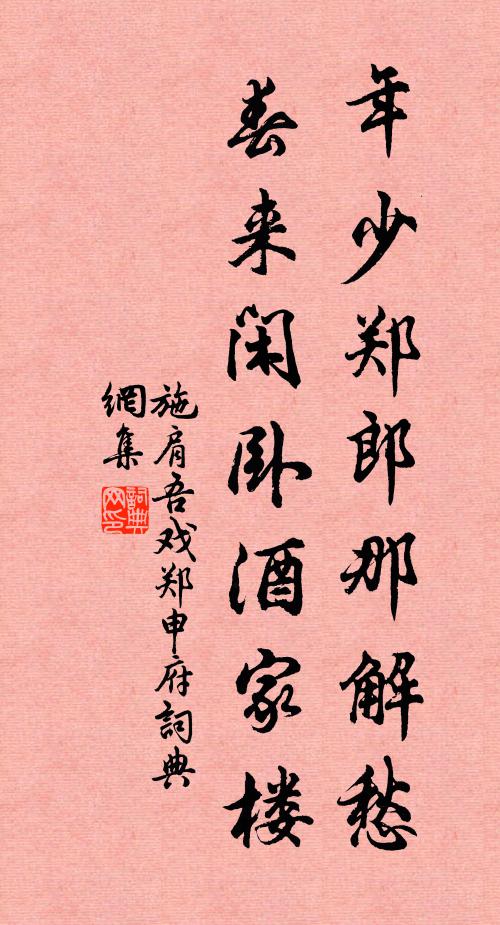 年少郑郎那解愁
春来闲卧酒家楼
施肩吾戏郑申府詞典
網集
詞典
网印